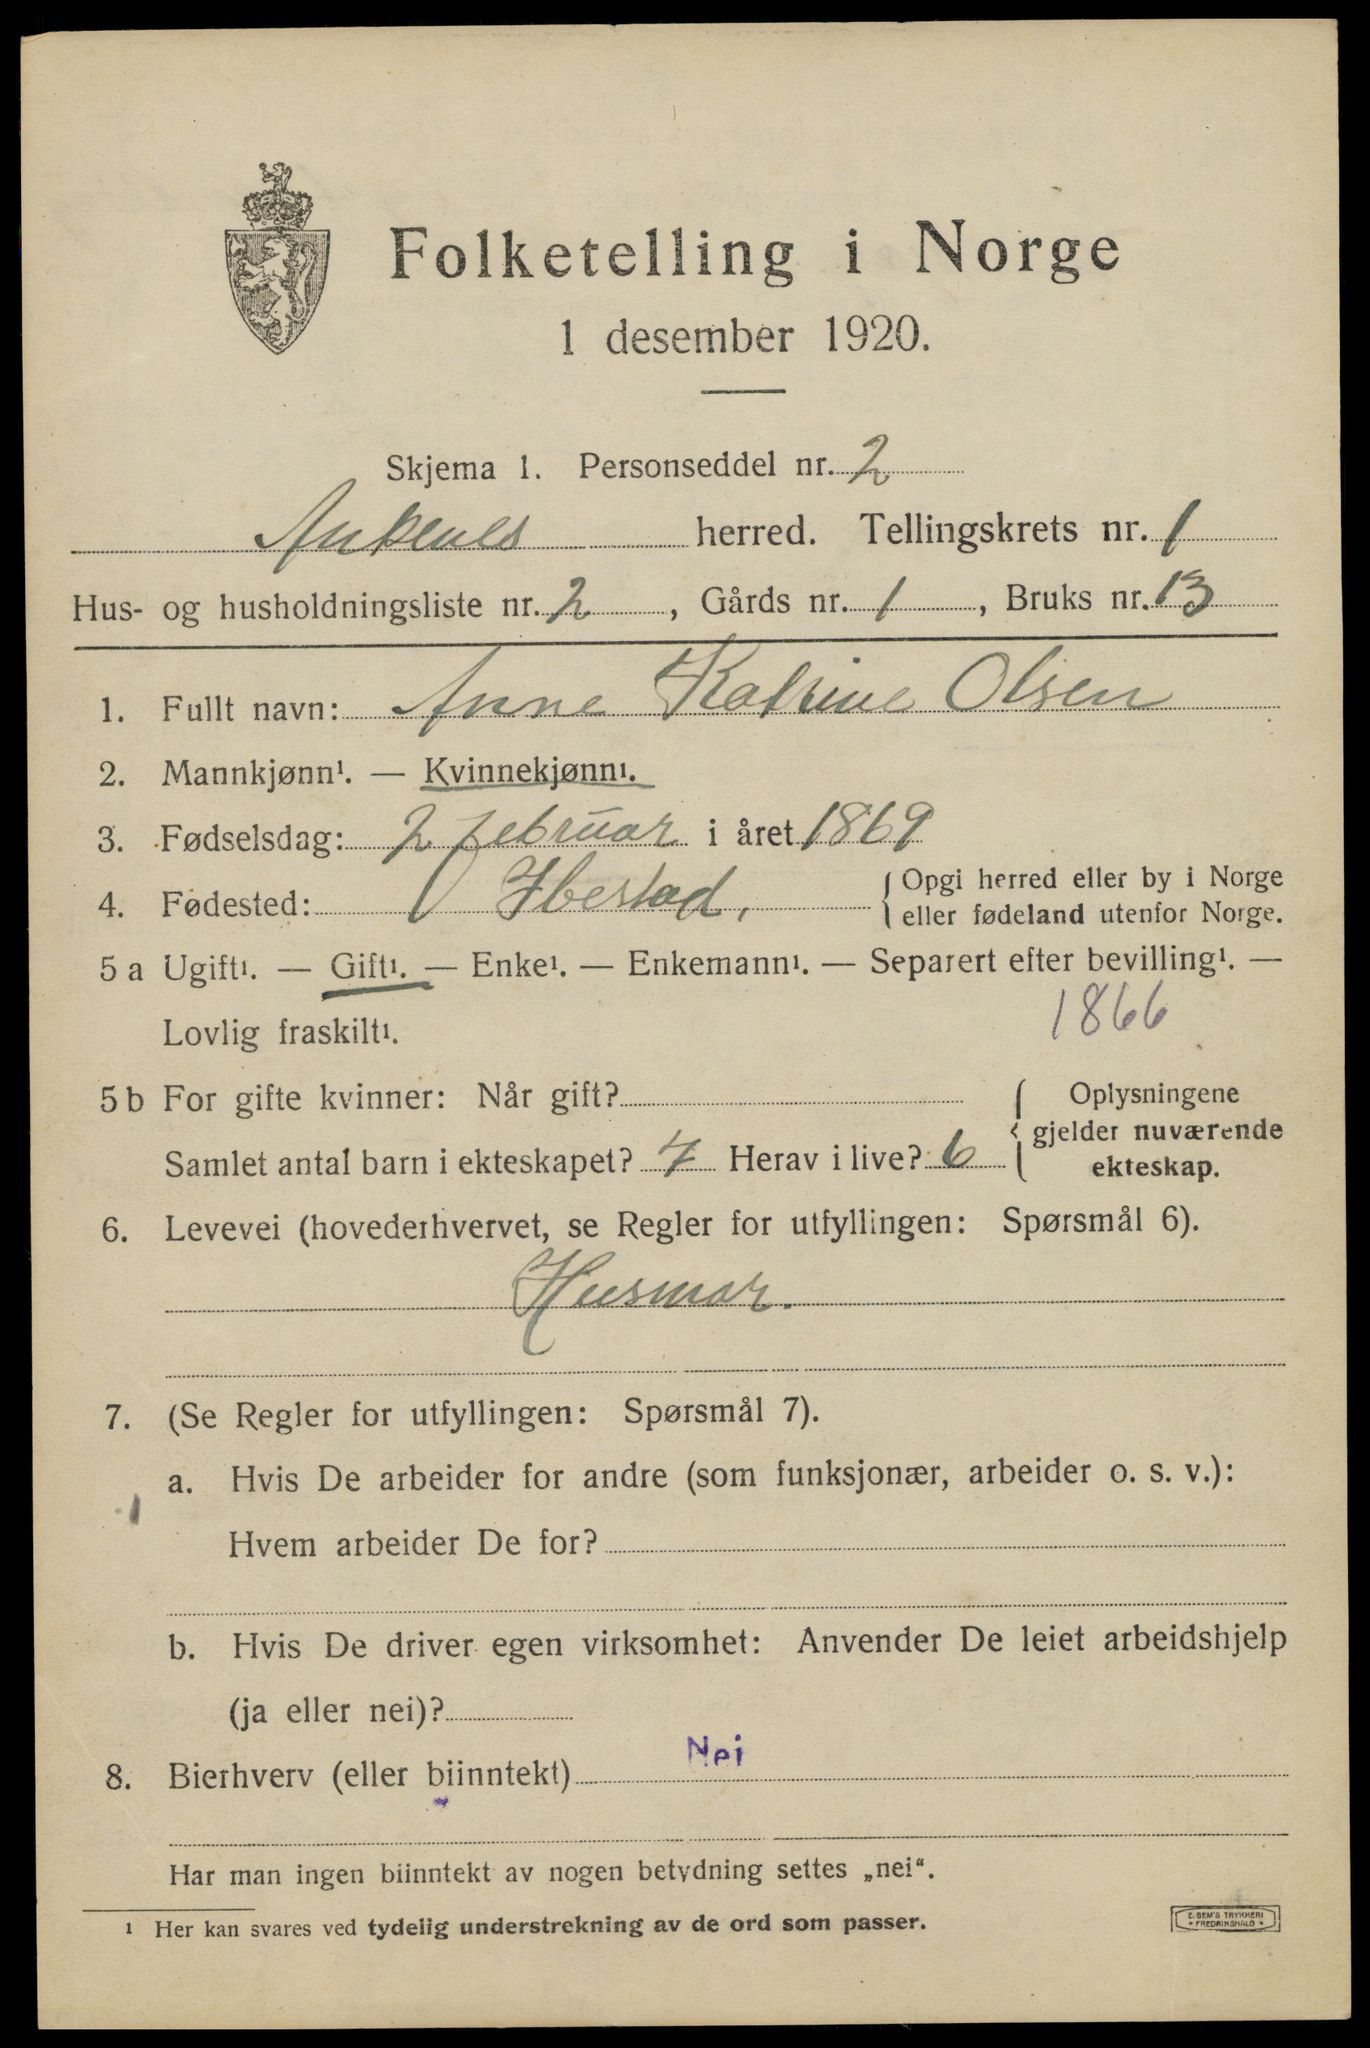 Folketelling i Norge
1 desember 1920.
Skjema 1. Personseddel nr. 2
Ankenes herred. Tellingskrets nr. 1
Hus- og husholdningsliste nr. 2, Gårds nr. 1, Bruks nr. 13
1. Fullt navn: Anne Katrine Olsen
2. Mannkjønn¹. — Kvinnekjønn¹.
3. Fødselsdag: 2 februar i året 1869
4. Fødested: Ibestad, Opgi herred eller by i Norge
eller fødeland utenfor Norge.
5 a Ugift¹. — Gift¹. — Enke¹. — Enkemann¹. — Separert efter bevilling¹. —
Lovlig fraskilt¹. 1866
5 b For gifte kvinner: Når gift? Oplysningene
gjelder nuværende
Samlet antal barn i ekteskapet? 7 Herav i live? 6 ekteskap.
6. Levevei (hovederhvervet, se Regler for utfyllingen: Spørsmål 6).
Husmor.
7. (Se Regler for utfyllingen: Spørsmål 7).
a. Hvis De arbeider for andre (som funksjonær, arbeider o. s. v.):
Hvem arbeider De for?
b. Hvis De driver egen virksomhet: Anvender De leiet arbeidshjelp
(ja eller nei)?
8. Bierhverv (eller biinntekt) Nei
Har man ingen biinntekt av nogen betydning settes „nei“.
¹ Her kan svares ved tydelig understrekning av de ord som passer.
E. SEM'S TRYKKERI
FREDRIKSHALD